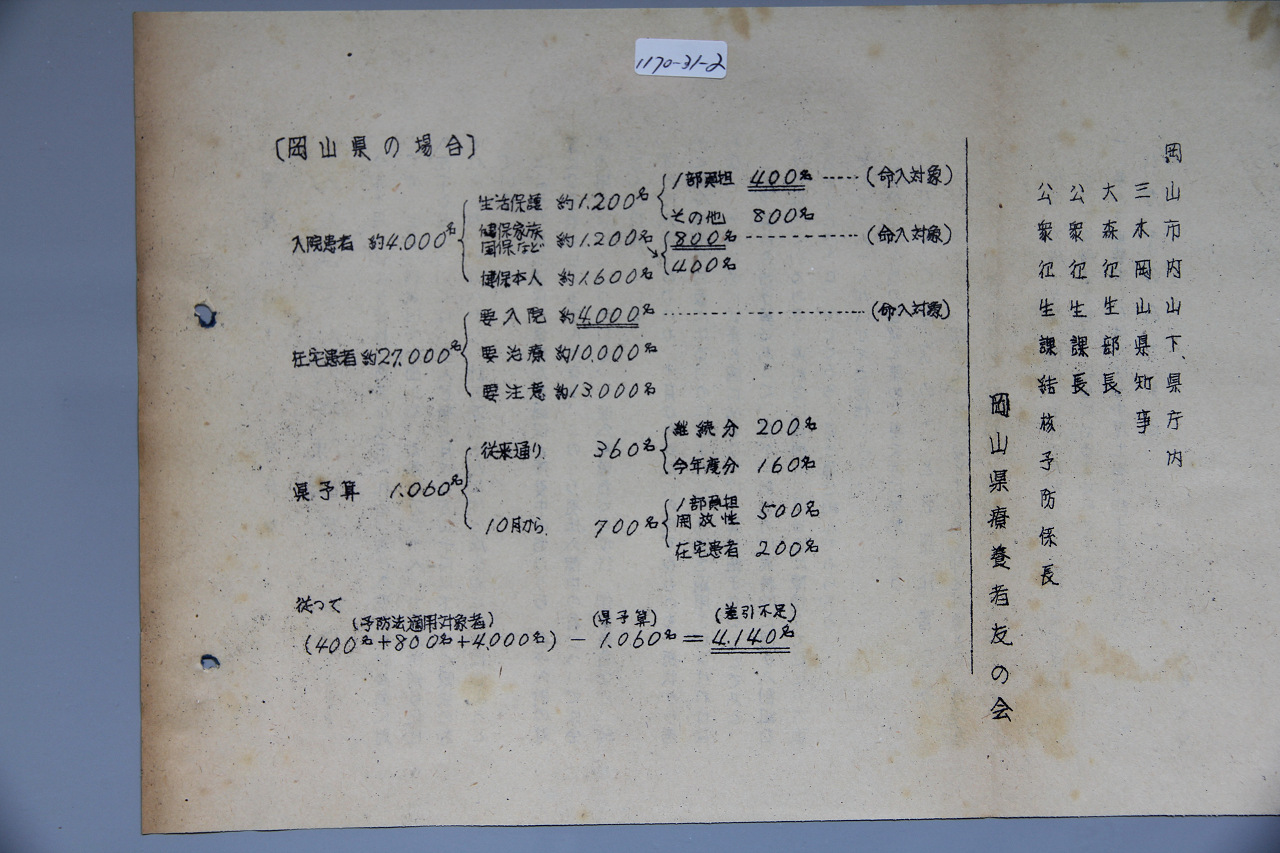 1170-31-2
岡山市内山下県庁内
三木岡山県知事
大森衛生部長
公衆衛生課長
公衆衛生課結核予防係長
岡山県療養者友の会
〔岡山県の場合〕
入院患者 約4.000名
生活保護 約1.200名
1部負担 400名 ----- (命入対象)
その他 800名
健保家族
国保など 約1.200名
800名 ----- (命入対象)
400名
健保本人 約1.600名
在宅患者 約27.000名
要入院 約4.000名 ----- (命入対象)
要治療 約10.000名
要注意 約13.000名
県予算 1.060名
従来通り 360名
継続分 200名
今年度分 160名
10月から 700名
1部負担
開放性 500名
在宅患者 200名
従つて
(予防法適用対象者) (県予算) (差引不足)
(400名+800名+4.000名) − 1.060名 = 4.140名